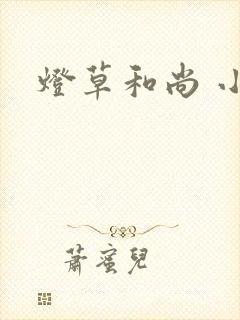 燈草和尚
蕭蜜兒